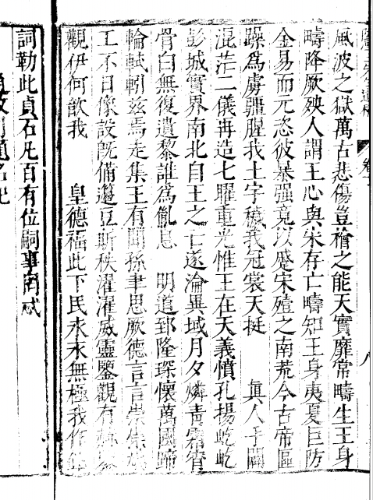 風波之獄萬古悲傷豈檜之能天實靡常疇生王身
疇降厥殃人謂王心與宋存亡疇知王身夷夏巨防
金易而元恣彼暴強竟以蹙宋殪之南荒今古帝區
躁為虜疆腥我土宇穢我冠裳天挺 眞人手闢
混茫二儀再造七曜重光惟王在天義憤孔揚屹屹
彭城實界南北自王之亡遂淪異域月夕燐青霜宵
骨白無復遺黎誰為亂息 明道郅隆琛懷萬國歸
輪軾軫茲焉走集王有聞孫聿思厥德言言崇
工不日像設旣備籩豆斯秩濯濯威靈鑒觀有
觀伊何歆我 皇德福此下民永永無極我作
詞勒此貞石凡百有位嗣事